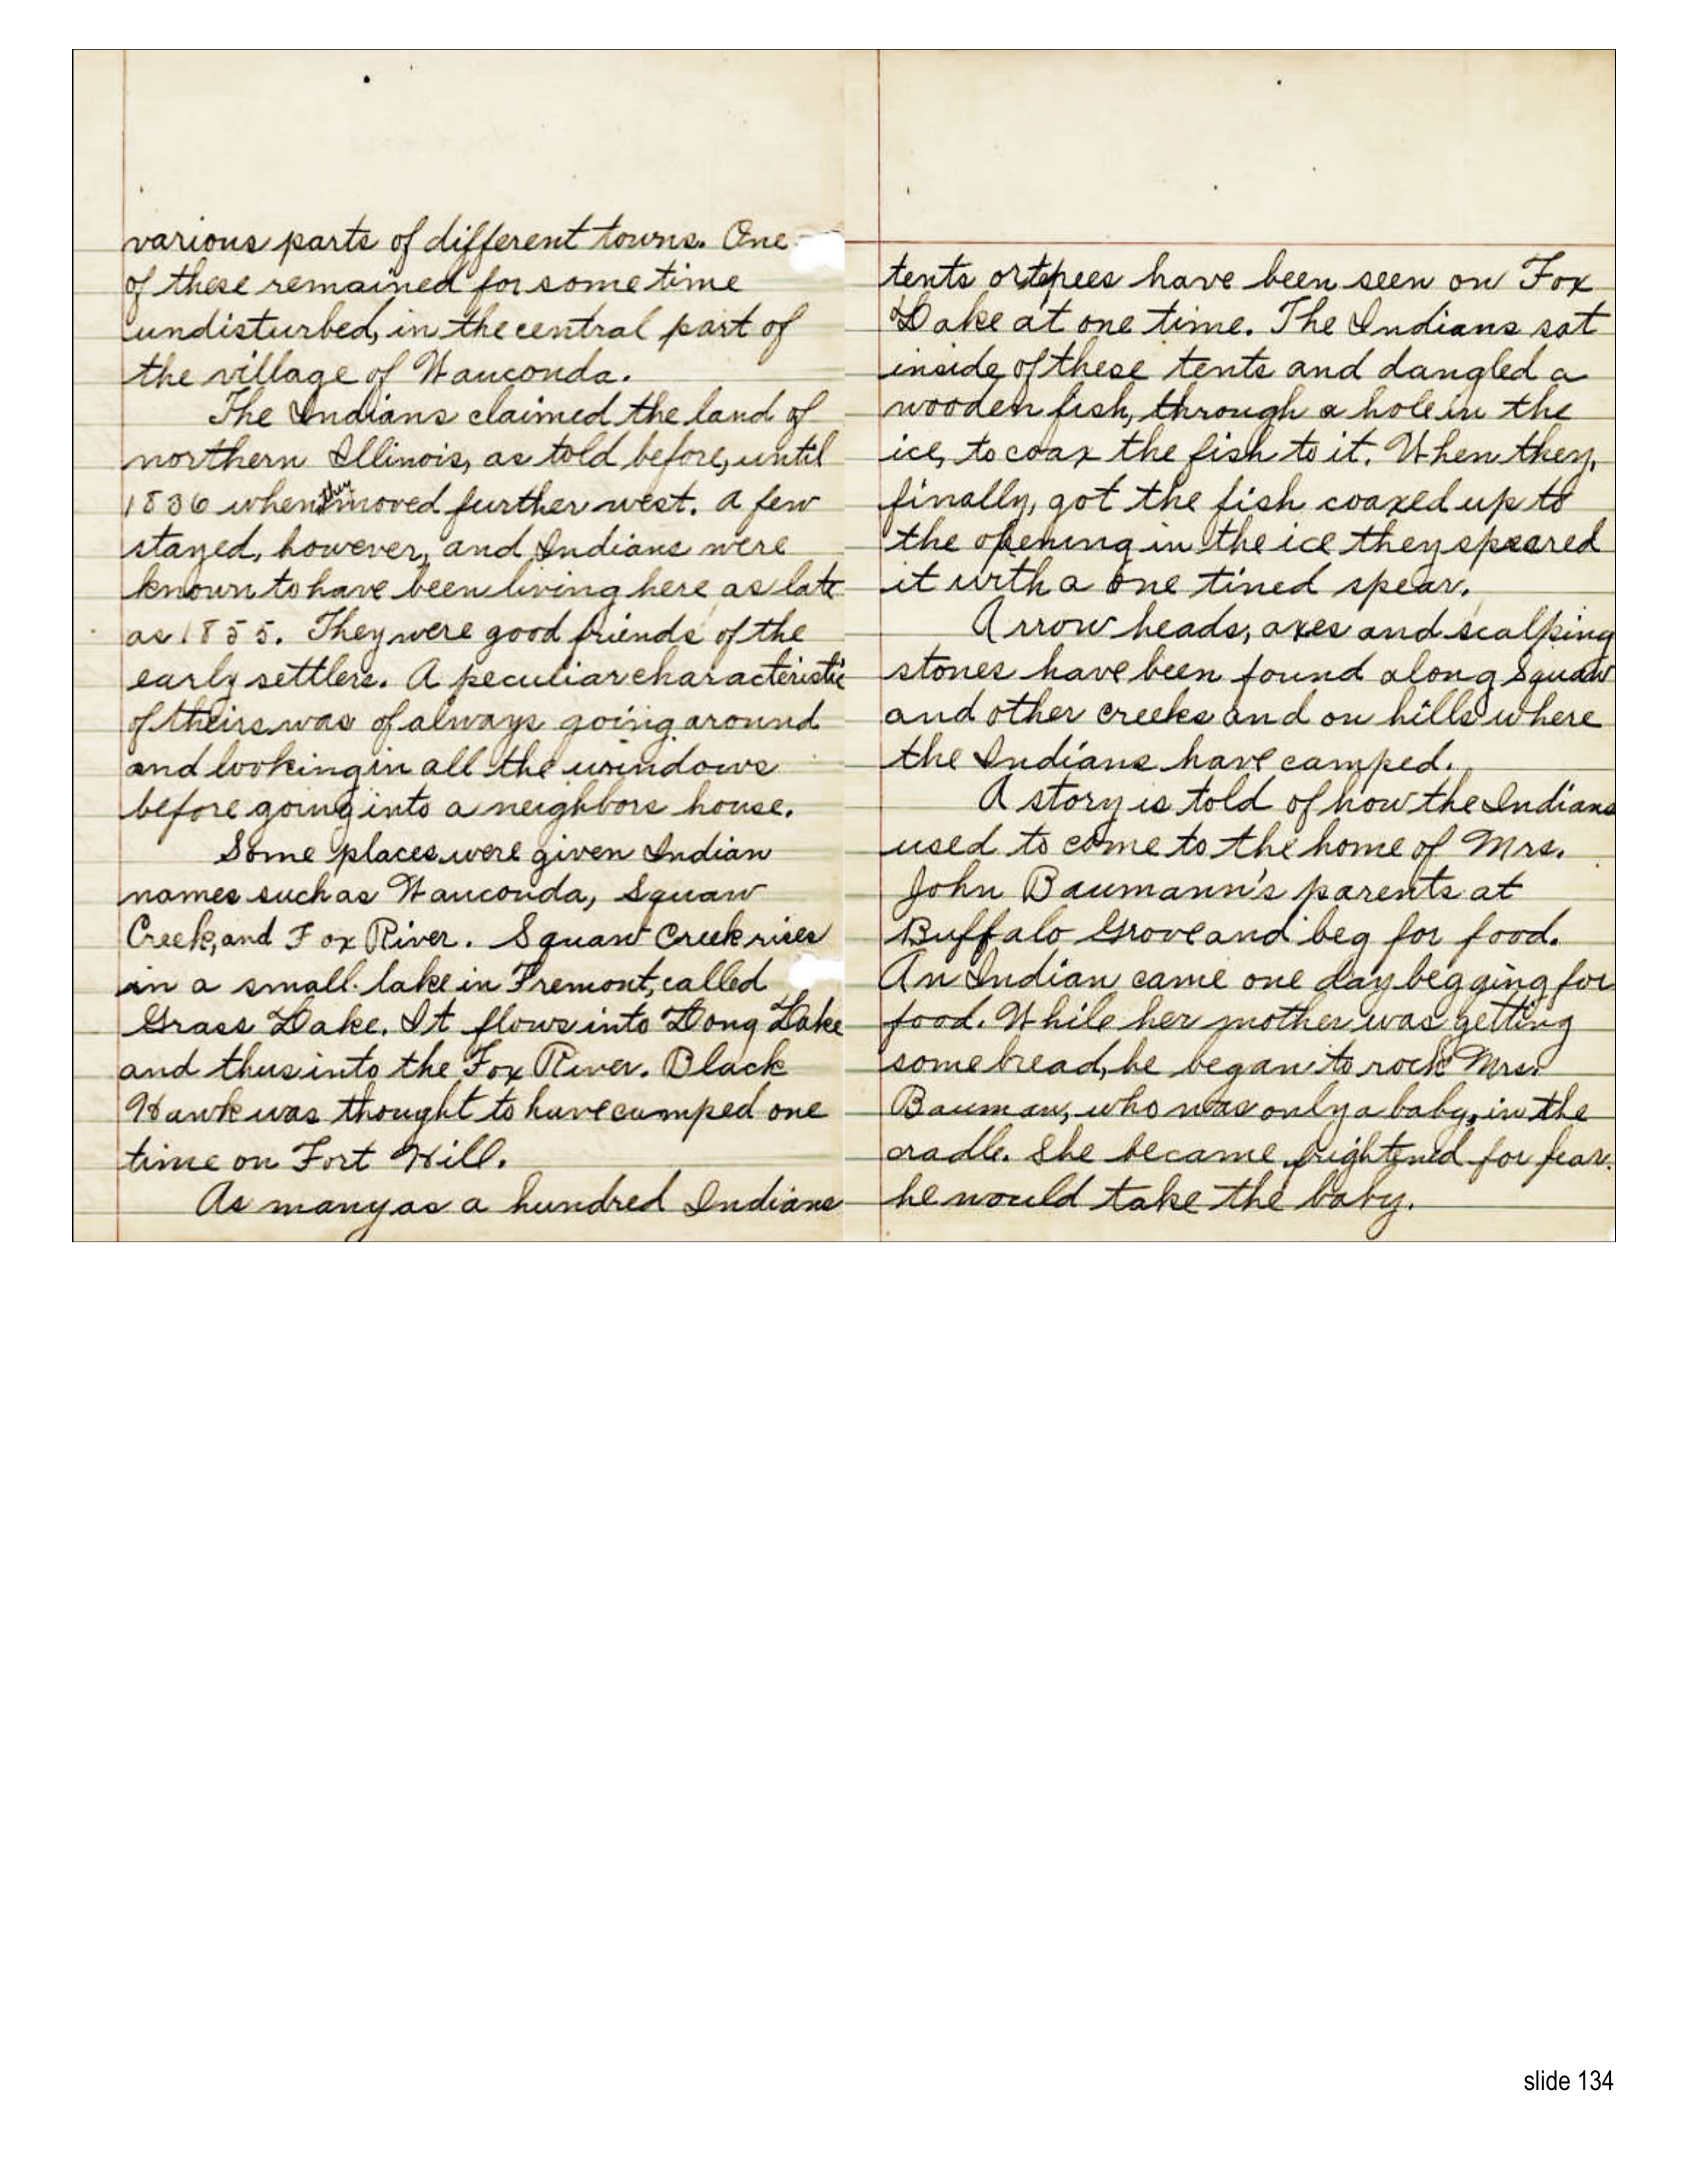 various parts of different towns. One
of these remained for some time
undisturbed, in the central part of
the village of Wauconda.
The Indians claimed the land of
northern Illinois, as told before, until
1836 when they moved further west. A few
stayed, however, and Indians were
known to have been living here as late
as 1855. They were good friends of the
early settlers. A peculiar characteristic
of theirs was of always going around
and looking in all the windows
before going into a neighbors house.
Some places were given Indian
names such as Wauconda, Squaw
Creek, and Fox River. Squaw Creek rises
in a small lake in Fremont, called
Grass Lake. It flows into Long Lake
and thus into the Fox River. Black
Hawk was thought to have camped one
time on Fort Hill.
As many as a hundred Indians
tents or tepees have been seen on Fox
Lake at one time. The Indians sat
inside of these tents and dangled a
wooden fish, through a hole in the
ice, to coax the fish to it. When they,
finally, got the fish coaxed up to
the opening in the ice they speared
it with a one tined spear.
Arrow heads, axes and scalping
stones have been found along Squaw
and other creeks and on hills where
the Indians have camped.
A story is told of how the Indians
used to come to the home of Mrs.
John Baumann's parents at
Buffalo Grove and beg for food.
An Indian came one day begging for
food. While her mother was getting
some bread, he began to rock Mrs.
Bauman, who was only a baby, in the
cradle. She became frightened for fear
he would take the baby.
slide 134